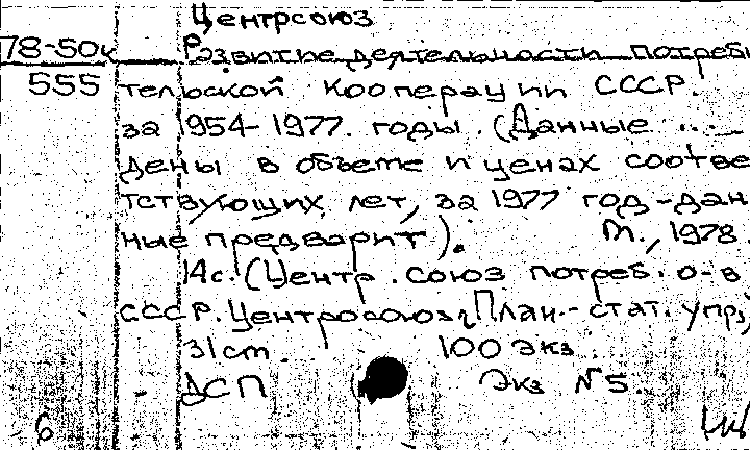 Центрсоюз
78-50к Развитие деятельности потреби
555 тельской кооперации СССР.
за 1954-1977. годы. (Данные
дены в объеме и ценах соотве
тствующих лет, за 1977 год-дан
ные предварит). М., 1978.
14с. (Центр. союз потреб. о-в
СССР. Центросоюз, План.- стат. упр,
31cm 100 экз
ДСП Экз №5.
6